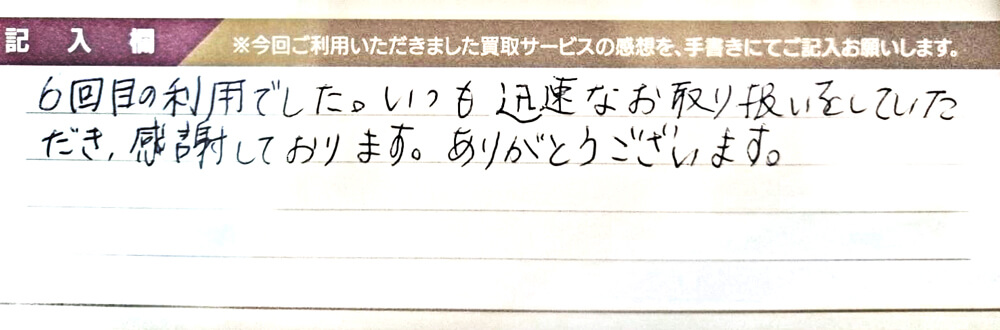 記入欄
※今回ご利用いただきました買取サービスの感想を、手書きにてご記入お願いします。
6回目の利用でした。いつも迅速なお取り扱いをしていた
だき、感謝しております。ありがとうございます。